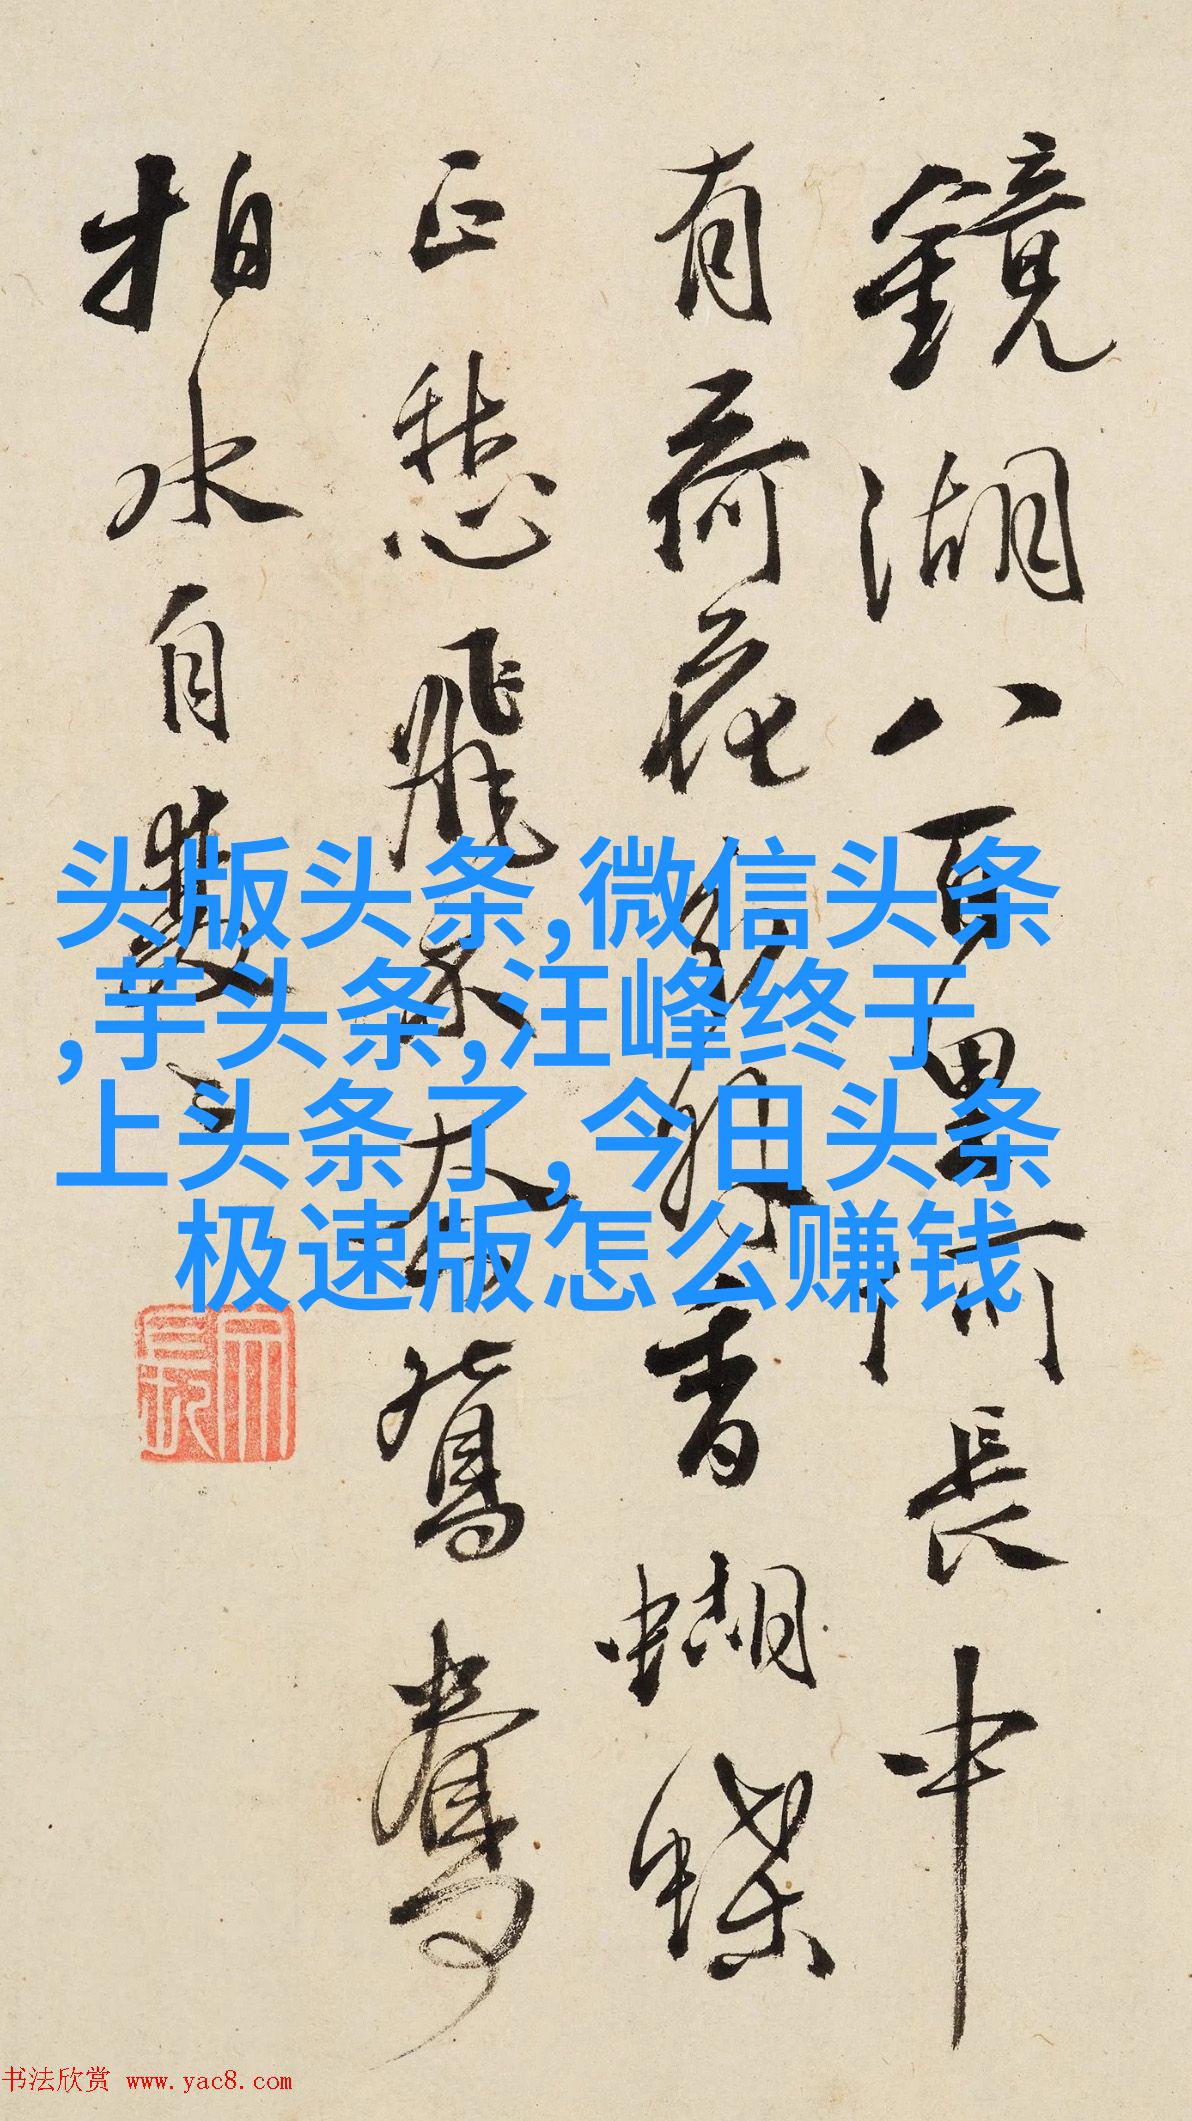 鏡湖八百里何長中
有荷花分外香蝴蝶
正愁飛不去鴛鴦
拍水自雙〻
头版头条,微信头条
,芋头条,汪峰终于
上头条了, 今日头条
极速版怎么赚钱
书法欣赏 www.yac8.com